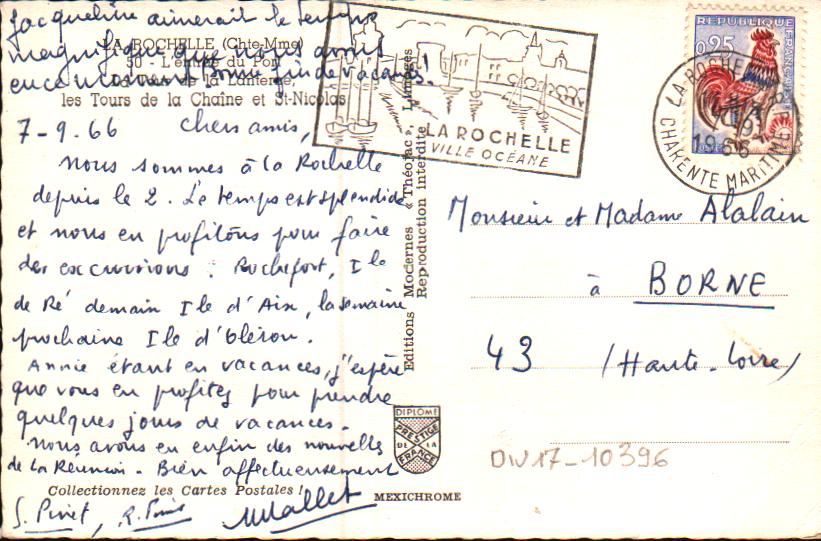 Jacqueline aimerait le temps
magnifique que nous avons
en ce moment Bonne fin de vacances!
LA ROCHELLE (Chte-Mme)
50 - L'entrée du Port
La Tour de la Lanterne,
les Tours de la Chaîne et St-Nicolas
7-9.66 Chers amis,
Nous sommes à la Rochelle
depuis le 2. Le temps est splendide
et nous en profitons pour faire
des excursions : Rochefort, Ile
de Ré demain Ile d'Aix, la semaine
prochaine Ile d'Oléron.
Annie étant en vacances, j'espère
que vous en profitez pour prendre
quelques jours de vacances.
Nous avons eu enfin des nouvelles
de La Réunion. Bien affectueusement
Collectionnez les Cartes Postales !
S. Pivet, R. Mallet
Editions Modernes « Théojac », Limoges
Reproduction interdite
DIPLOME
PRESTIGE
DE LA
FRANCE
MEXICHROME
LA ROCHELLE
VILLE OCÉANE
REPUBLIQUE
FRANÇAISE
0,25
LA ROCHELLE
1966
CHARENTE MARITIME
Monsieur et Madame Alalain
à BORNE
43 (Haute-Loire)
DIV17-10396